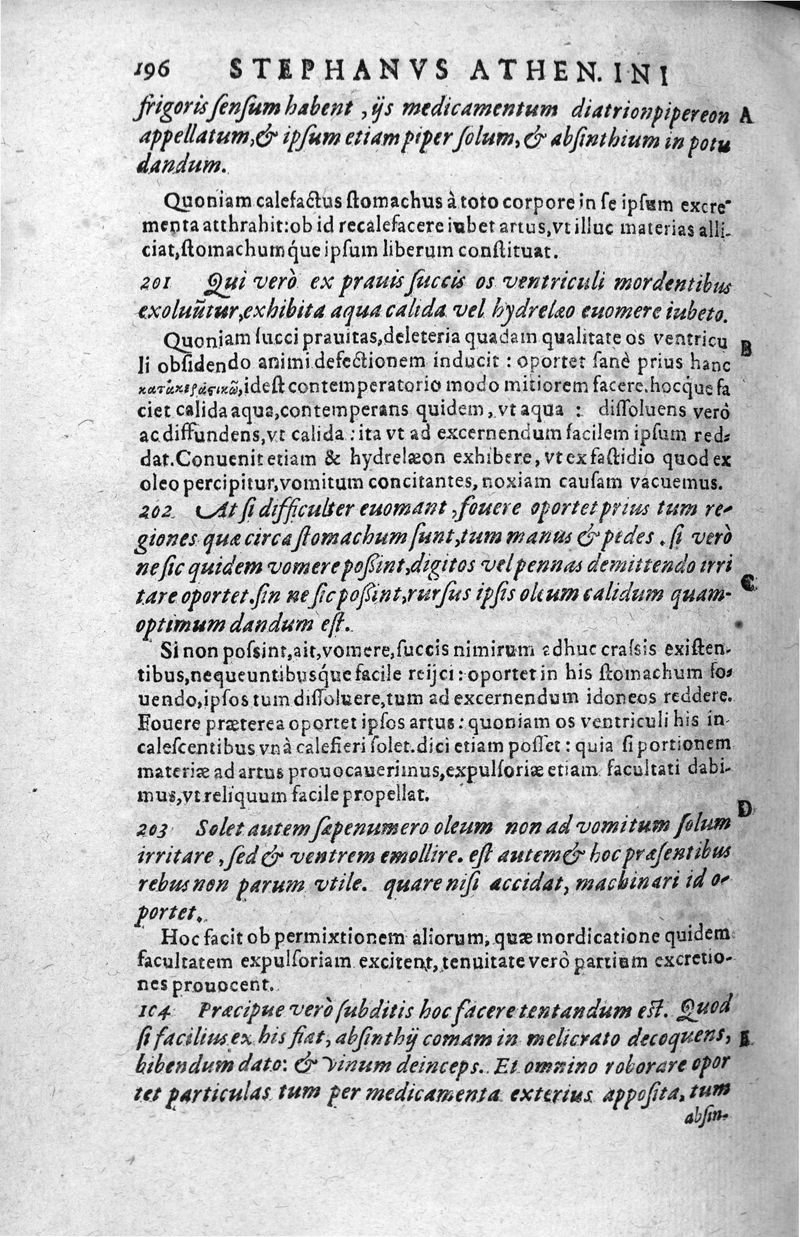 196 STEPHANVS ATHEN. INI
frigoris ſenſum habent, ijs medicamentum diatrionpipereon A
appellatum, & ipſum etiam piper ſolum, & abſinthium in potu
dandum.
Quoniam calefactus ſtomachus à toto corpore in ſe ipſum excre-
menta atthrahit: ob id recalefacere iubet artus, vt illuc materias alli-
ciat, ſtomachumq́ue ipſum liberum conſtituat.
201 Qui verò ex prauis ſuccis os ventriculi mordentibus
exoluũtur, exhibita aqua calida vel hydrelæo euomere iubeto.
Quoniam ſucci prauitas, deleteria quadam qualitate os ventricu B
li obſidendo animi defectionem inducit: oportet ſanè prius hanc
ideſt contemperatorio modo mitiorem facere. hocq́ue fa
ciet calida aqua, contemperans quidem, vt aqua: diſſoluens verò
ac diffundens, vt calida: ita vt ad excernendum facilem ipſum red-
dat. Conuenit etiam & hydrelæon exhibere, vt ex faſtidio quod ex
oleo percipitur, vomitum concitantes, noxiam cauſam vacuemus.
202 At ſi difficulter euomant, fouere oportet prius tum re-
giones quæ circa ſtomachum ſunt, tum manus & pedes. ſi verò
ne ſic quidem vomere poßint, digitos vel pennas demittendo irri
tare oportet. ſin ne ſic poßint, rurſus ipſis oleum calidum quam- C
optimum dandum eſt.
Si non poſsint, ait, vomere, ſuccis nimirum adhuc craſsis exiſten-
tibus, nequeuntibusq́ue facile reijci: oportet in his ſtomachum fo-
uendo, ipſos tum diſſoluere, tum ad excernendum idoneos reddere.
Fouere præterea oportet ipſos artus: quoniam os ventriculi his in-
caleſcentibus vnà calefieri ſolet. dici etiam poſſet: quia ſi portionem
materiæ ad artus prouocauerimus, expulſoriæ etiam facultati dabi-
mus, vt reliquum facile propellat.
D
203 Solet autem ſæpenumero oleum non ad vomitum ſolum
irritare, ſed & ventrem emollire. eſt autem & hoc præſentibus
rebus non parum vtile. quare niſi accidat, machinari id o-
portet.
Hoc facit ob permixtionem aliorum, quæ mordicatione quidem
facultatem expulſoriam excitent, tenuitate verò partium excretio-
nes prouocent.
1C4 Præcipue verò ſubditis hoc facere tentandum eſt. Quod
ſi facilius ex his fiat, abſinthij comam in melicrato decoquens, E
bibendum dato: & vinum deinceps. Et omnino roborare opor
tet particulas tum per medicamenta exterius appoſita, tum
abſin-